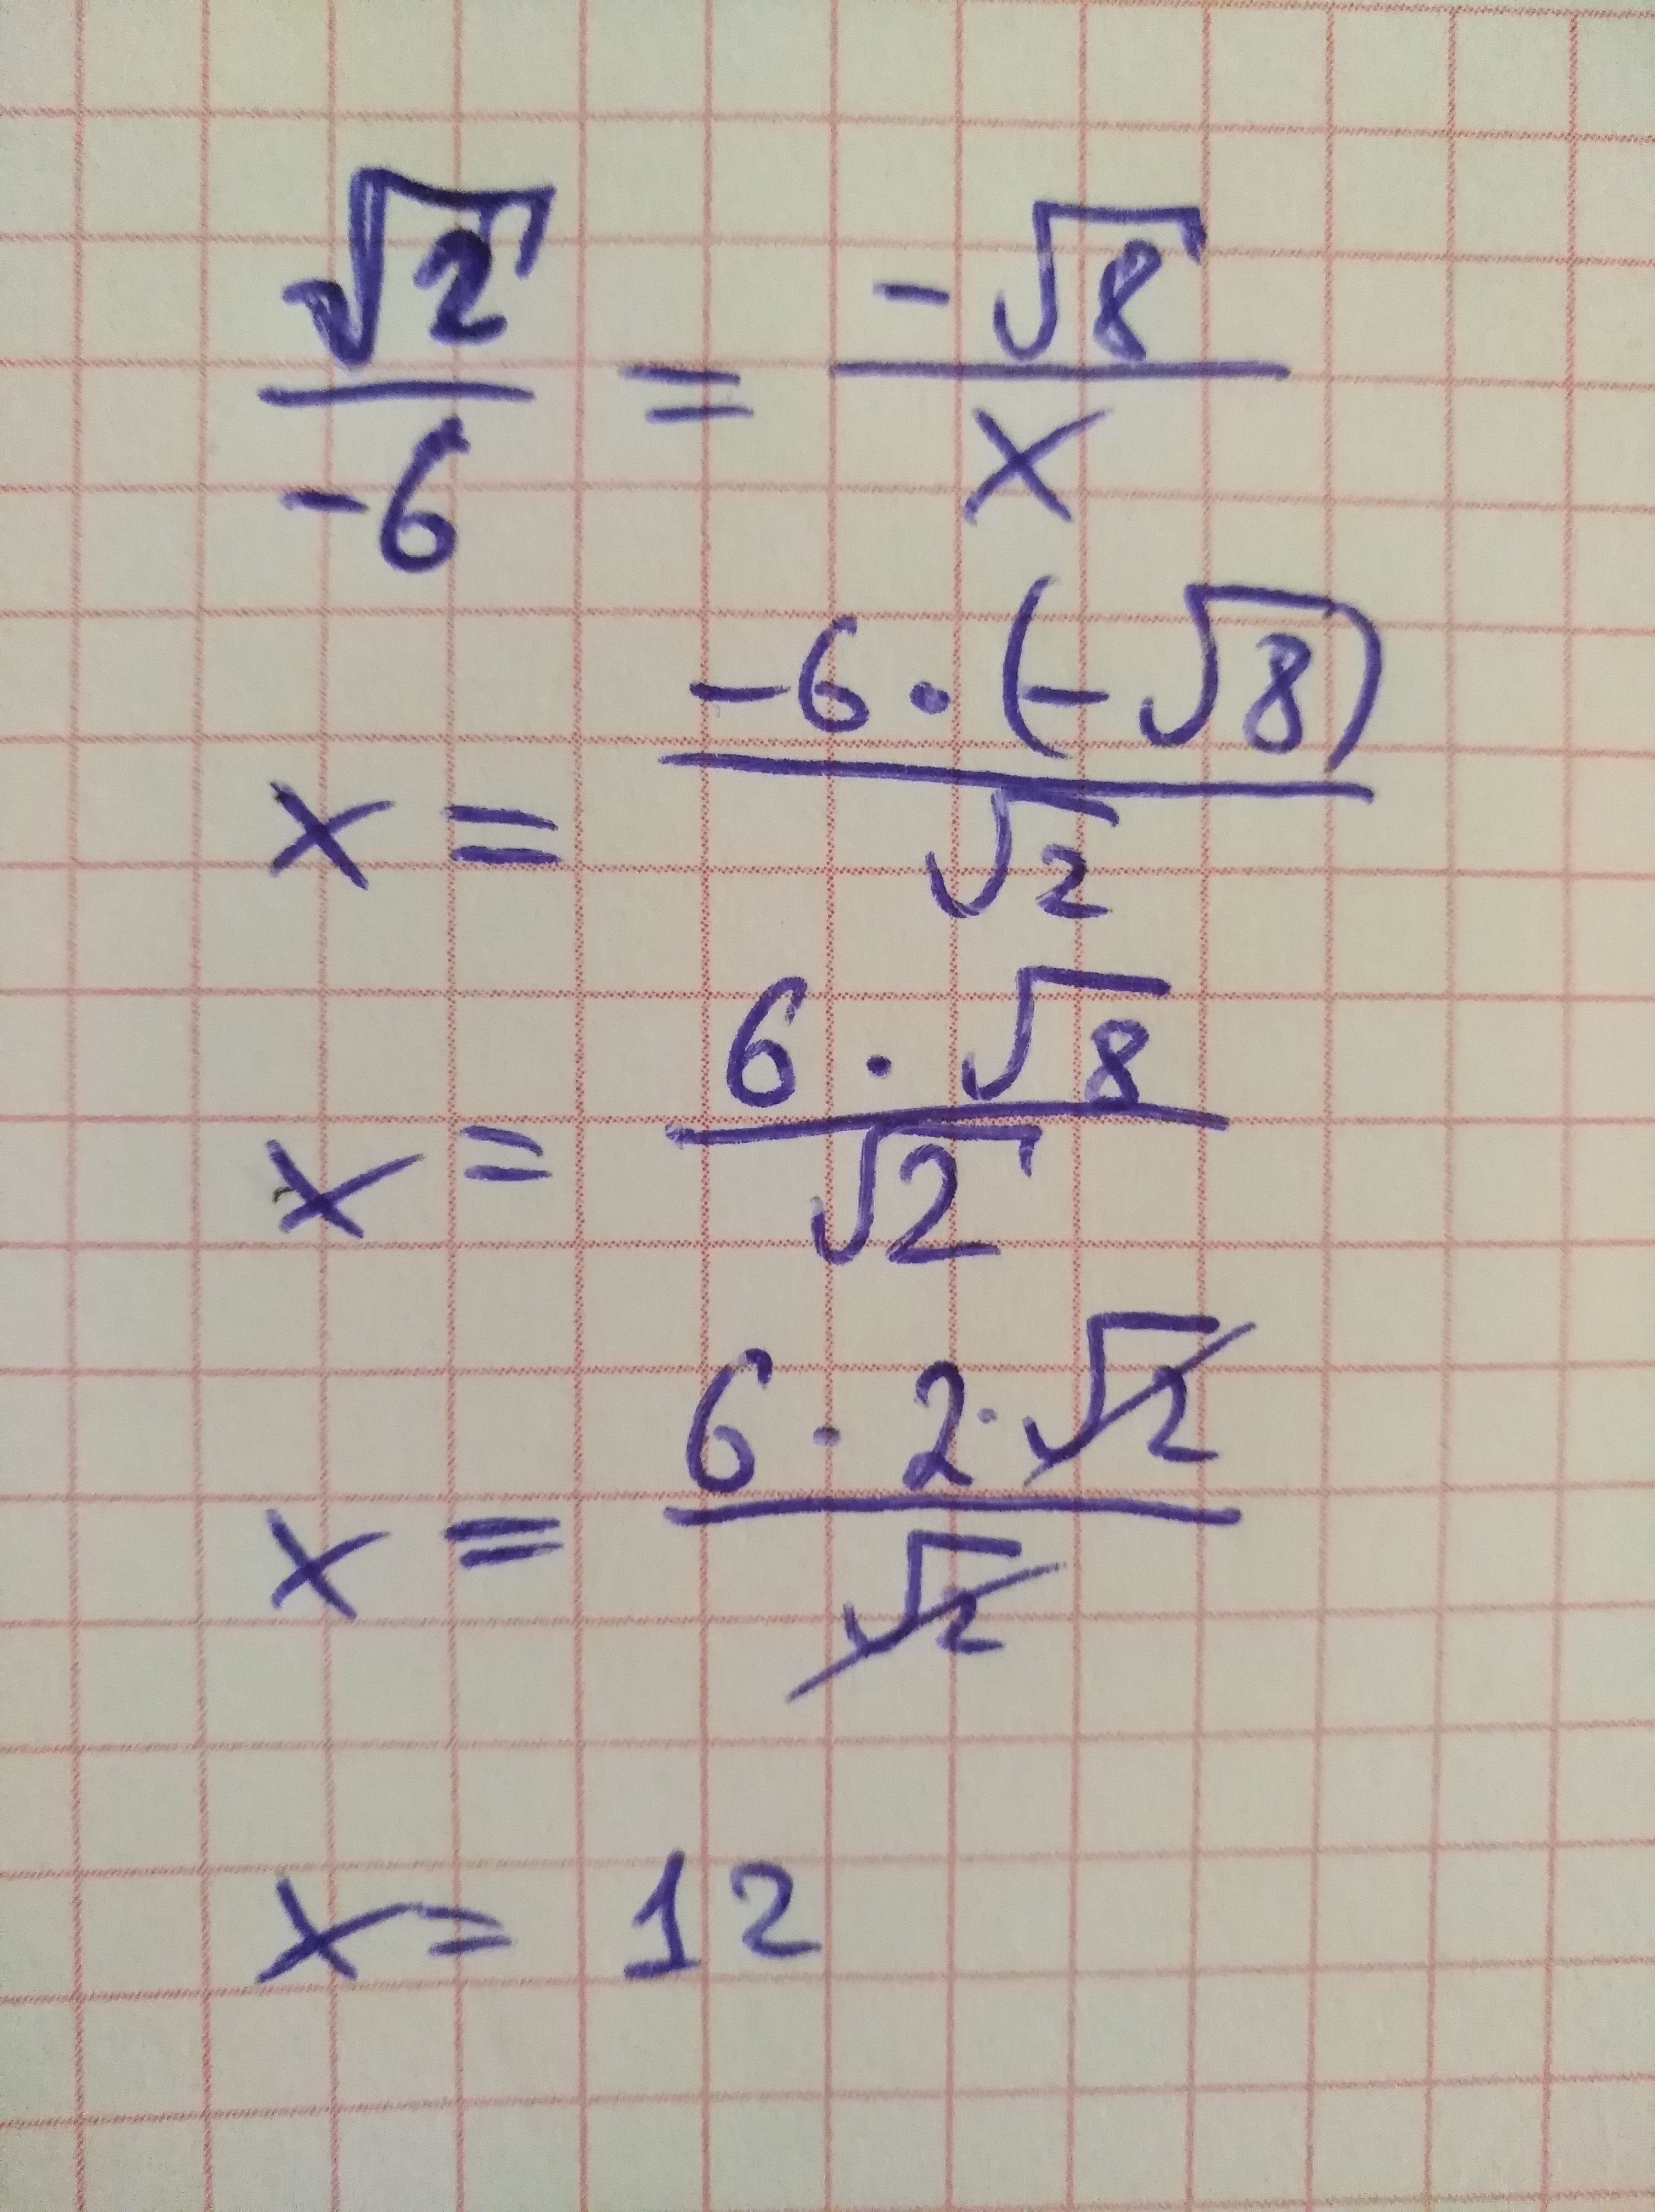 √2/-6 = -√8/x
x = -6·(-√8)/√2
x = 6·√8/√2
x = 6·2·√2/√2
x = 12